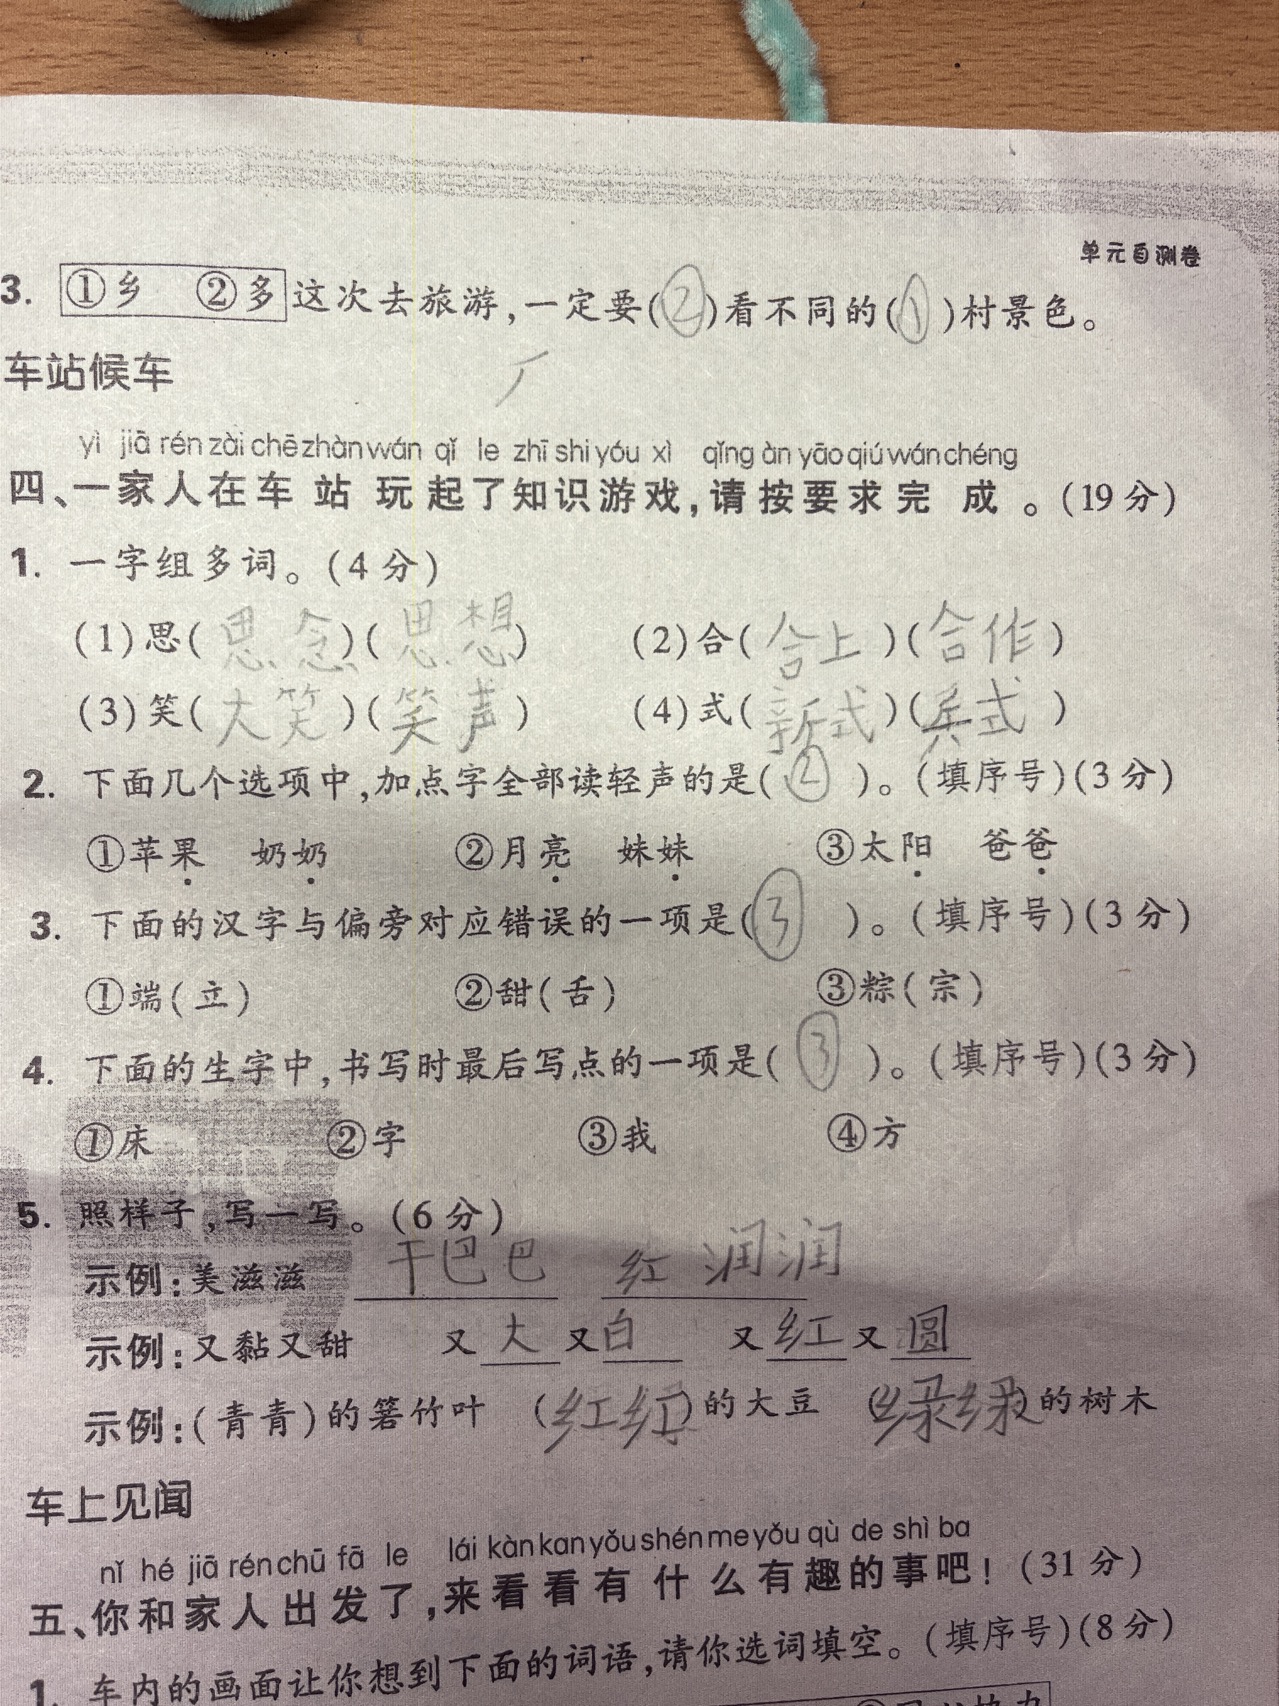 单元自测卷
3. ①乡 ②多 这次去旅游,一定要(②)看不同的(①)村景色。
车站候车
yì jiā rén zài chē zhàn wán qǐ le zhī shi yóu xì qǐng àn yāo qiú wán chéng
四、一家人在车站玩起了知识游戏,请按要求完成。(19分)
1. 一字组多词。(4分)
(1)思(思念)(思想) (2)合(合上)(合作)
(3)笑(大笑)(笑声) (4)式(新式)(式)
2. 下面几个选项中,加点字全部读轻声的是(②)。(填序号)(3分)
①苹果 奶奶 ②月亮 妹妹 ③太阳 爸爸
3. 下面的汉字与偏旁对应错误的一项是(③)。(填序号)(3分)
①端(立) ②甜(舌) ③粽(宗)
4. 下面的生字中,书写时最后写点的一项是(③)。(填序号)(3分)
①床 ②字 ③我 ④方
5. 照样子,写一写。(6分)
示例:美滋滋 干巴巴 红润润
示例:又黏又甜 又大又白 又红又圆
示例:(青青)的箬竹叶 (红红)的大豆 (绿绿)的树木
车上见闻
nǐ hé jiā rén chū fā le lái kàn kan yǒu shén me yǒu qù de shì ba
五、你和家人出发了,来看看有什么有趣的事吧!(31分)
1. 车内的画面让你想到下面的词语,请你选词填空。(填序号)(8分)